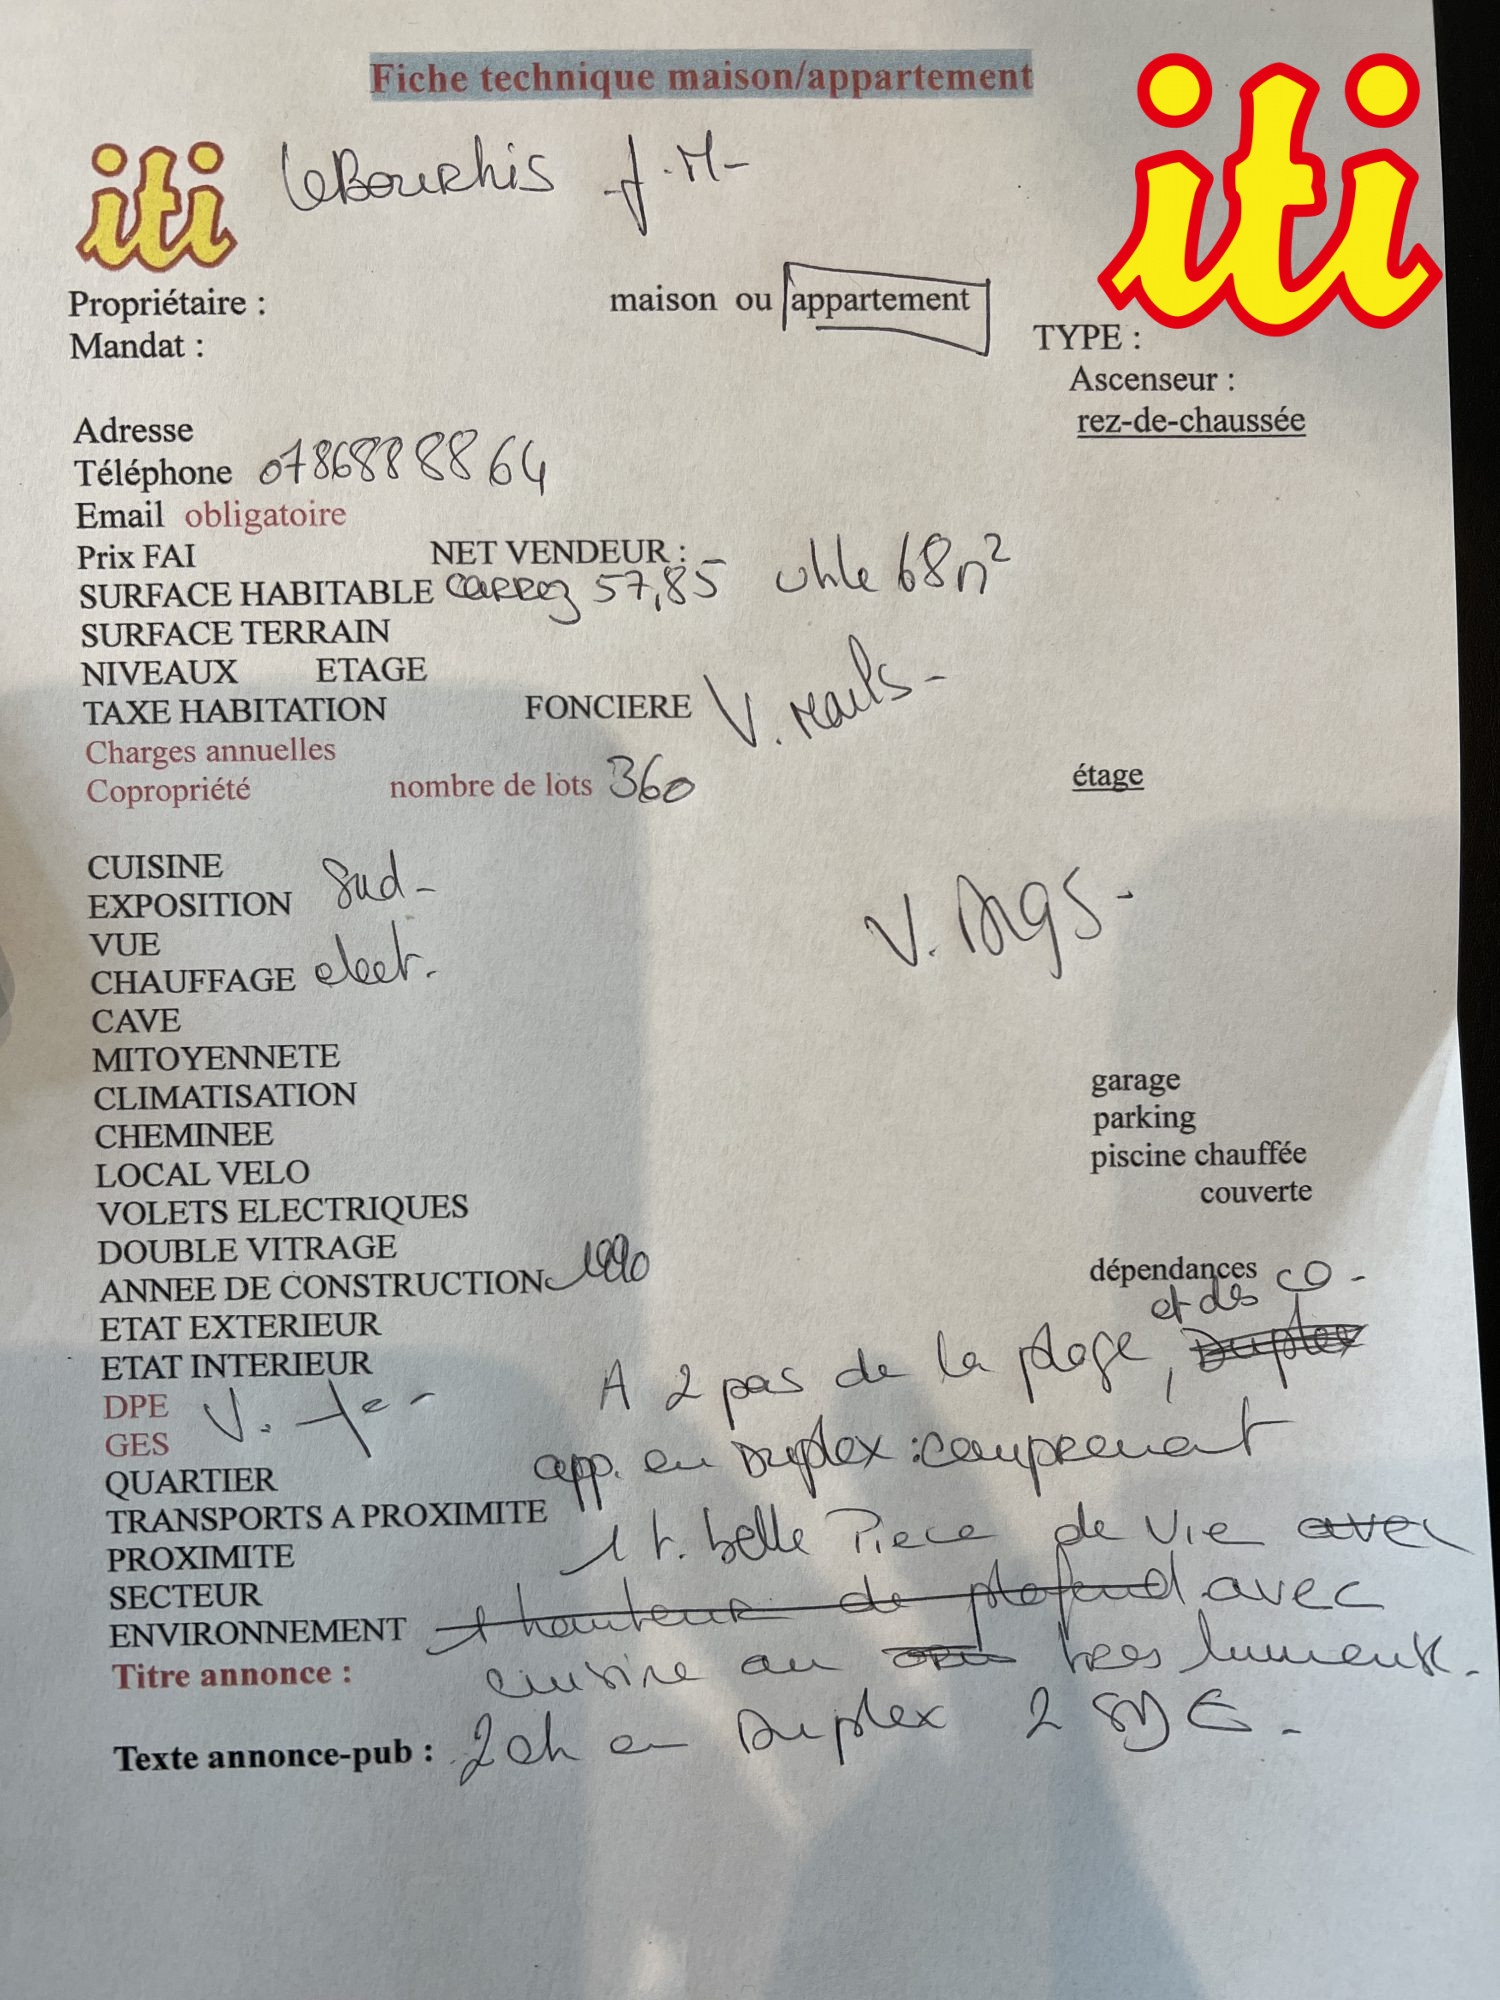 Fiche technique maison/appartement
iti
iti
LeBourhis J.M-
Propriétaire :
maison ou appartement
Mandat :
TYPE :
Ascenseur :
rez-de-chaussée
Adresse
Téléphone 0786888864
Email obligatoire
Prix FAI NET VENDEUR :
SURFACE HABITABLE Carrez 57,85 utile 68m²
SURFACE TERRAIN
NIVEAUX ETAGE
TAXE HABITATION FONCIERE V. mails-
Charges annuelles
Copropriété nombre de lots 360
étage
CUISINE
EXPOSITION Sud-
VUE
V. Diags-
CHAUFFAGE elect.
CAVE
MITOYENNETE
CLIMATISATION
garage
CHEMINEE
parking
LOCAL VELO
piscine chauffée
VOLETS ELECTRIQUES
couverte
DOUBLE VITRAGE
ANNEE DE CONSTRUCTION 1990
dépendances
ETAT EXTERIEUR
et des co-
ETAT INTERIEUR
A 2 pas de la plage, Duplex
DPE
GES
app. en Duplex : comprenant
QUARTIER
TRANSPORTS A PROXIMITE
1 t. belle Piece de Vie avec
PROXIMITE
SECTEUR
hauteur de plafond avec
ENVIRONNEMENT
cuisine am tres lumeux.
Titre annonce :
Texte annonce-pub : 2 ch en Duplex 2 SDE-